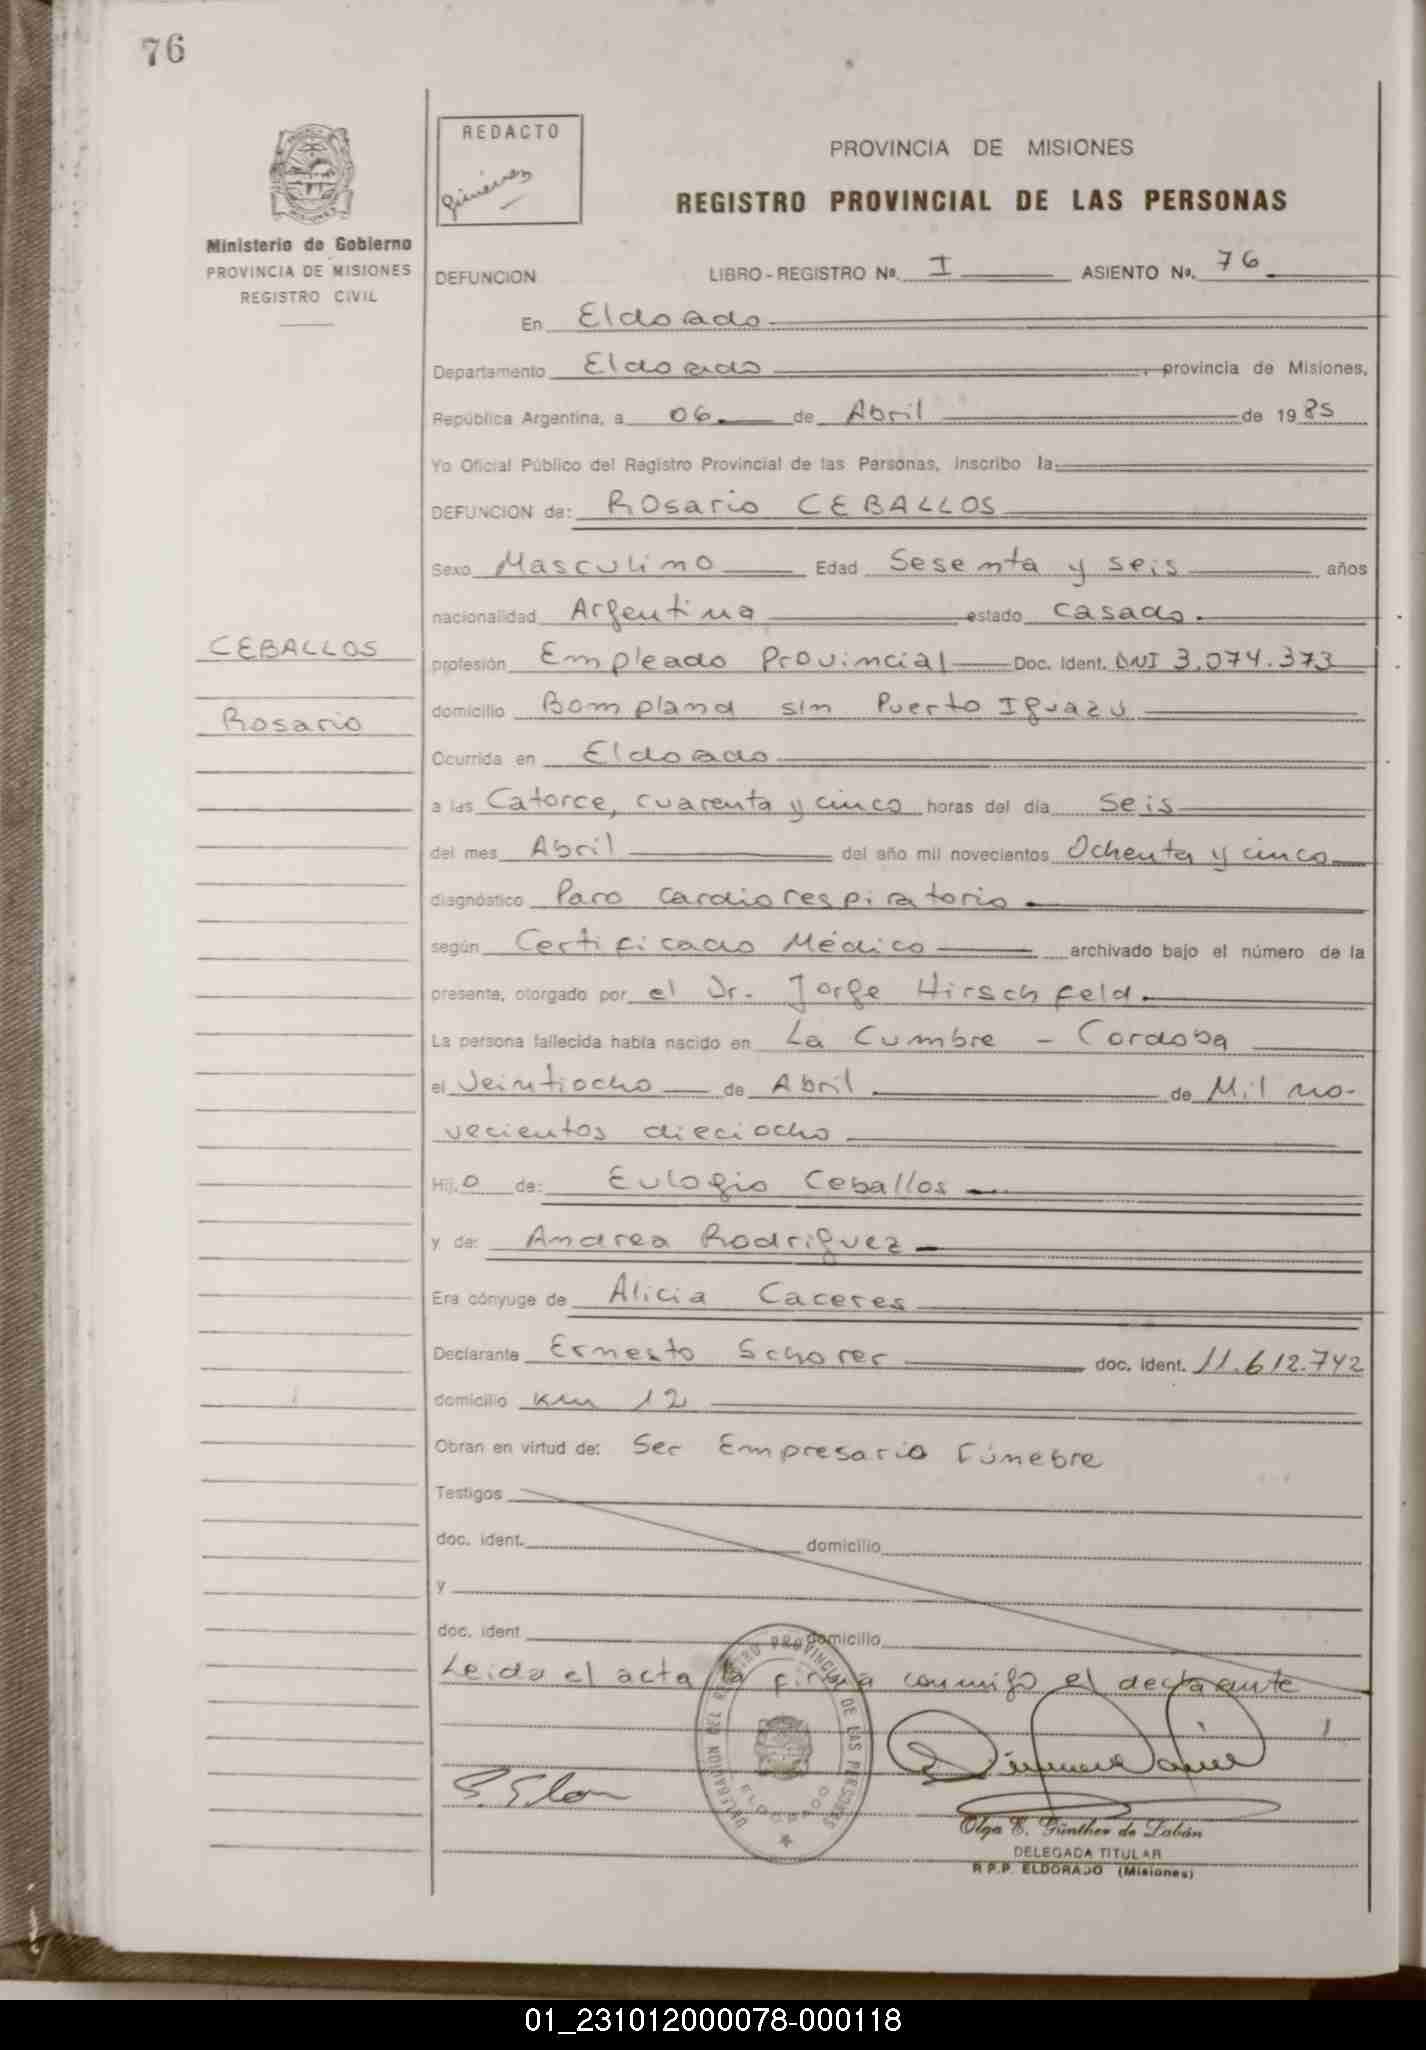 76
REDACTO
Giménez
Ministerio de Gobierno
PROVINCIA DE MISIONES
REGISTRO CIVIL
PROVINCIA DE MISIONES
REGISTRO PROVINCIAL DE LAS PERSONAS
DEFUNCION LIBRO - REGISTRO No. I ASIENTO No. 76
En Eldorado
Departamento Eldorado, provincia de Misiones,
República Argentina, a 06 de Abril de 1985
Yo Oficial Público del Registro Provincial de las Personas, inscribo la
DEFUNCION de: ROsario CEBALLOS
Sexo Masculino Edad Sesenta y seis años
nacionalidad Argentina estado casado.
CEBALLOS
Rosario
profesión Empleado Provincial Doc. Ident. DNI 3.074.373
domicilio Bompland s/n Puerto Iguazu
Ocurrida en Eldorado
a las Catorce, cuarenta y cinco horas del día seis
del mes Abril del año mil novecientos Ochenta y cinco
diagnóstico Paro cardiorespiratorio
según Certificado Médico archivado bajo el número de la
presente, otorgado por el Dr. Jorge Hirschfeld.
La persona fallecida había nacido en La Cumbre - Cordoba
el Veintiocho de Abril de Mil no-
vecientos dieciocho
Hij o de: Eulogio Ceballos
y de: Andrea Rodriguez
Era cónyuge de Alicia Caceres
Declarante Ernesto Schorer doc. Ident. 11.612.742
domicilio km 12
Obran en virtud de: Ser Empresario Fúnebre
Testigos
doc. ident. domicilio
y
doc. ident domicilio
Leida el acta la firma conmigo el declarante
DELEGACION DEL REGISTRO PROVINCIAL DE LAS PERSONAS
ELDORADO
Olga E. Günther de Labán
DELEGADA TITULAR
R.P.P. ELDORADO (Misiones)
01_231012000078-000118